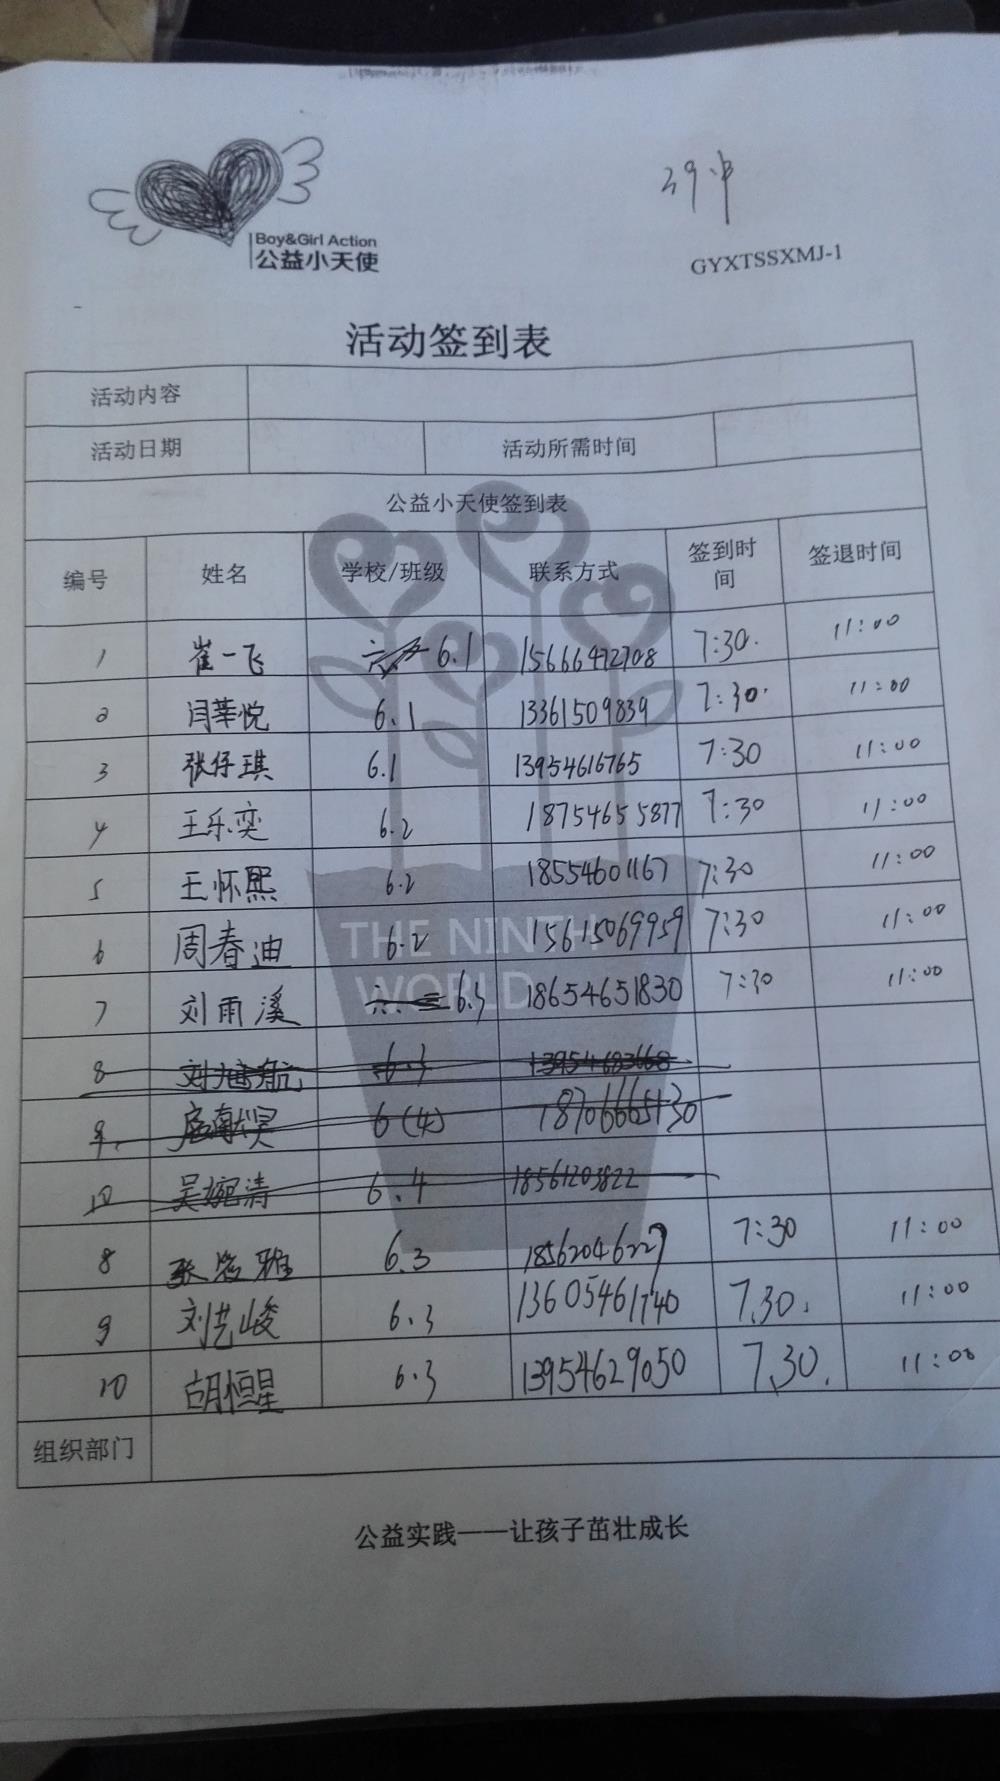 Boy&Girl Action
公益小天使
39中
GYXTSSXMJ-1
活动签到表
活动内容
活动日期 活动所需时间
公益小天使签到表
编号 姓名 学校/班级 联系方式 签到时间 签退时间
1 崔一飞 6.1 15666472708 7:30. 11:00
2 闫莘悦 6.1 13361509839 7:30. 11:00
3 张仔琪 6.1 13954616765 7:30 11:00
4 王乐奕 6.2 18754655877 7:30 11:00
5 王怀熙 6.2 18554601167 7:30 11:00
6 周春迪 6.2 15615069959 7:30 11:00
7 刘雨溪 6.3 18654651830 7:30 11:00
8 刘航 6.3 13954683668
9. 6(4) 18706665130
10 吴婉清 6.4 18561203822
8 张雅 6.3 18562046227 7:30 11:00
9 刘艺峻 6.3 13605461740 7.30. 11:00
10 胡恒星 6.3 13954629050 7.30. 11:00
组织部门
THE NINTH
WORLD
公益实践——让孩子茁壮成长